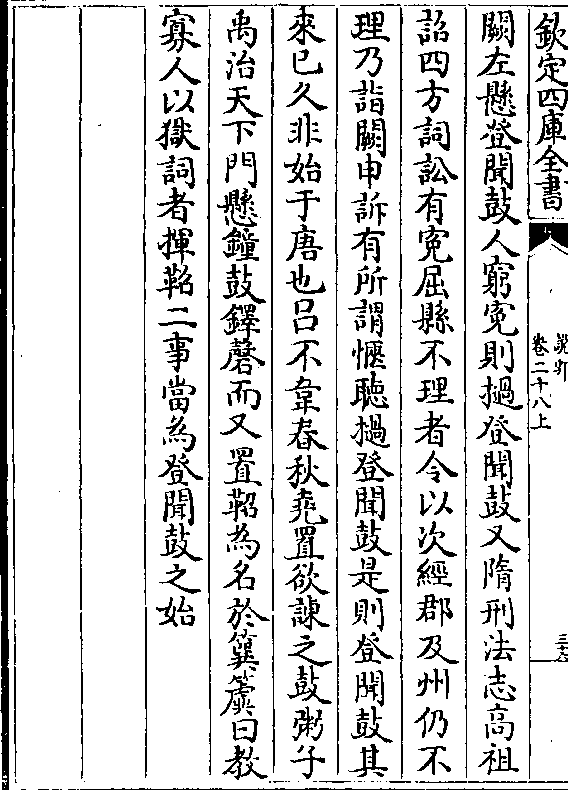 欽定四庫全書
說郛
卷二十八上
闕左懸登聞鼓人窮寃則撾登聞鼓又隋刑法志高祖
詔四方詞訟有寃屈縣不理者令以次經郡及州仍不
理乃詣闕申訴有所謂愜聽撾登聞鼓是則登聞鼓其
來已久非始于唐也吕不韋春秋堯置欲諫之鼓粥子
禹治天下門懸鐘鼓鐸磬而又置鞀為名於簨簴曰教
寡人以獄詞者揮鞀二事當為登聞鼓之始